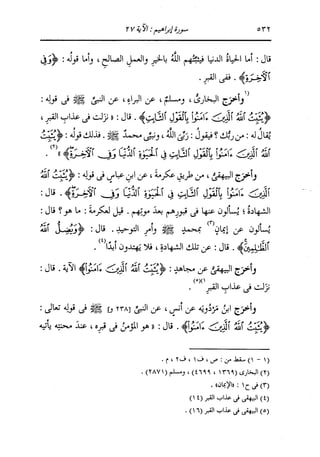 ٥٣٢ سورة إبراهيم : الآية ٢٧
قال : أما الحياةُ الدنيا فيثبِّتُهم اللهُ بالخيرِ والعملِ الصالحِ ، وأما قولُه : ﴿وَفِى
ٱلْأَخِـرَةِ﴾ . ففى القبرِ .
(١وأخرَج البخارىُّ ، ومسلمٌ ، عن البراءِ ، عن النبىِّ ﷺ فى قولِه :
﴿يُثَبِّتُ ٱللَّهُ ٱلَّذِينَ ءَامَنُوا۟ بِٱلْقَوْلِ ٱلثَّابِتِ﴾ . قال : « نزَلت فى عذابِ القبرِ ،
يُقالُ له : مَن ربُّك ؟ فيقولُ : ربِّىَ اللهُ ، ونبيِّى محمدٌ ﷺ . فذلك قولُه : ﴿يُثَبِّتُ
ٱللَّهُ ٱلَّذِينَ ءَامَنُوا۟ بِٱلْقَوْلِ ٱلثَّابِتِ فِى ٱلْحَيَوٰةِ ٱلدُّنْيَا وَفِى ٱلْأَخِـرَةِ﴾ »(٢) .
وأخرَج البيهقىُّ ، من طريقِ عكرمةَ ، عن ابنِ عباسٍ فى قولِه : ﴿يُثَبِّتُ ٱللَّهُ
ٱلَّذِينَ ءَامَنُوا۟ بِٱلْقَوْلِ ٱلثَّابِتِ فِى ٱلْحَيَوٰةِ ٱلدُّنْيَا وَفِى ٱلْأَخِـرَةِ﴾ . قال :
الشهادةُ ؛ يُسألون عنها فى قبورِهم بعدَ موتِهم . قيل لعكرمةَ : ما هو ؟ قال :
يُسألون عن إيمانٍ(٣) بمحمدٍ ﷺ وأمرِ التوحيدِ . قال : ﴿وَيُضِلُّ ٱللَّهُ
ٱلظَّـٰلِمِينَ﴾ . قال : عن تلك الشهادةِ ، فلا يَهتدون أبدًا(٤) .
وأخرَج البيهقىُّ عن مجاهدٍ : ﴿يُثَبِّتُ ٱللَّهُ ٱلَّذِينَ ءَامَنُوا۟﴾ الآية . قال :
نزَلت فى عذابِ القبرِ١)(٥) .
وأخرَج ابنُ مَرْدُويَه عن أنسٍ ، عن النبىِّ [٢٣٨و] ﷺ فى قولِه تعالى :
﴿يُثَبِّتُ ٱللَّهُ ٱلَّذِينَ ءَامَنُوا۟﴾ . قال : « هو المؤمنُ فى قبرِه ، عندَ محنتِه يأتيه
(١ - ١) سقط من : ص ، ف١ ، ف٢ ، م .
(٢) البخارى (١٣٦٩، ٤٦٩٩) ، ومسلم (٢٨٧١) .
(٣) فى ح١ : «الإيمان» .
(٤) البيهقى فى عذاب القبر (١٤)
(٥) البيهقى فى عذاب القبر (١٦) .